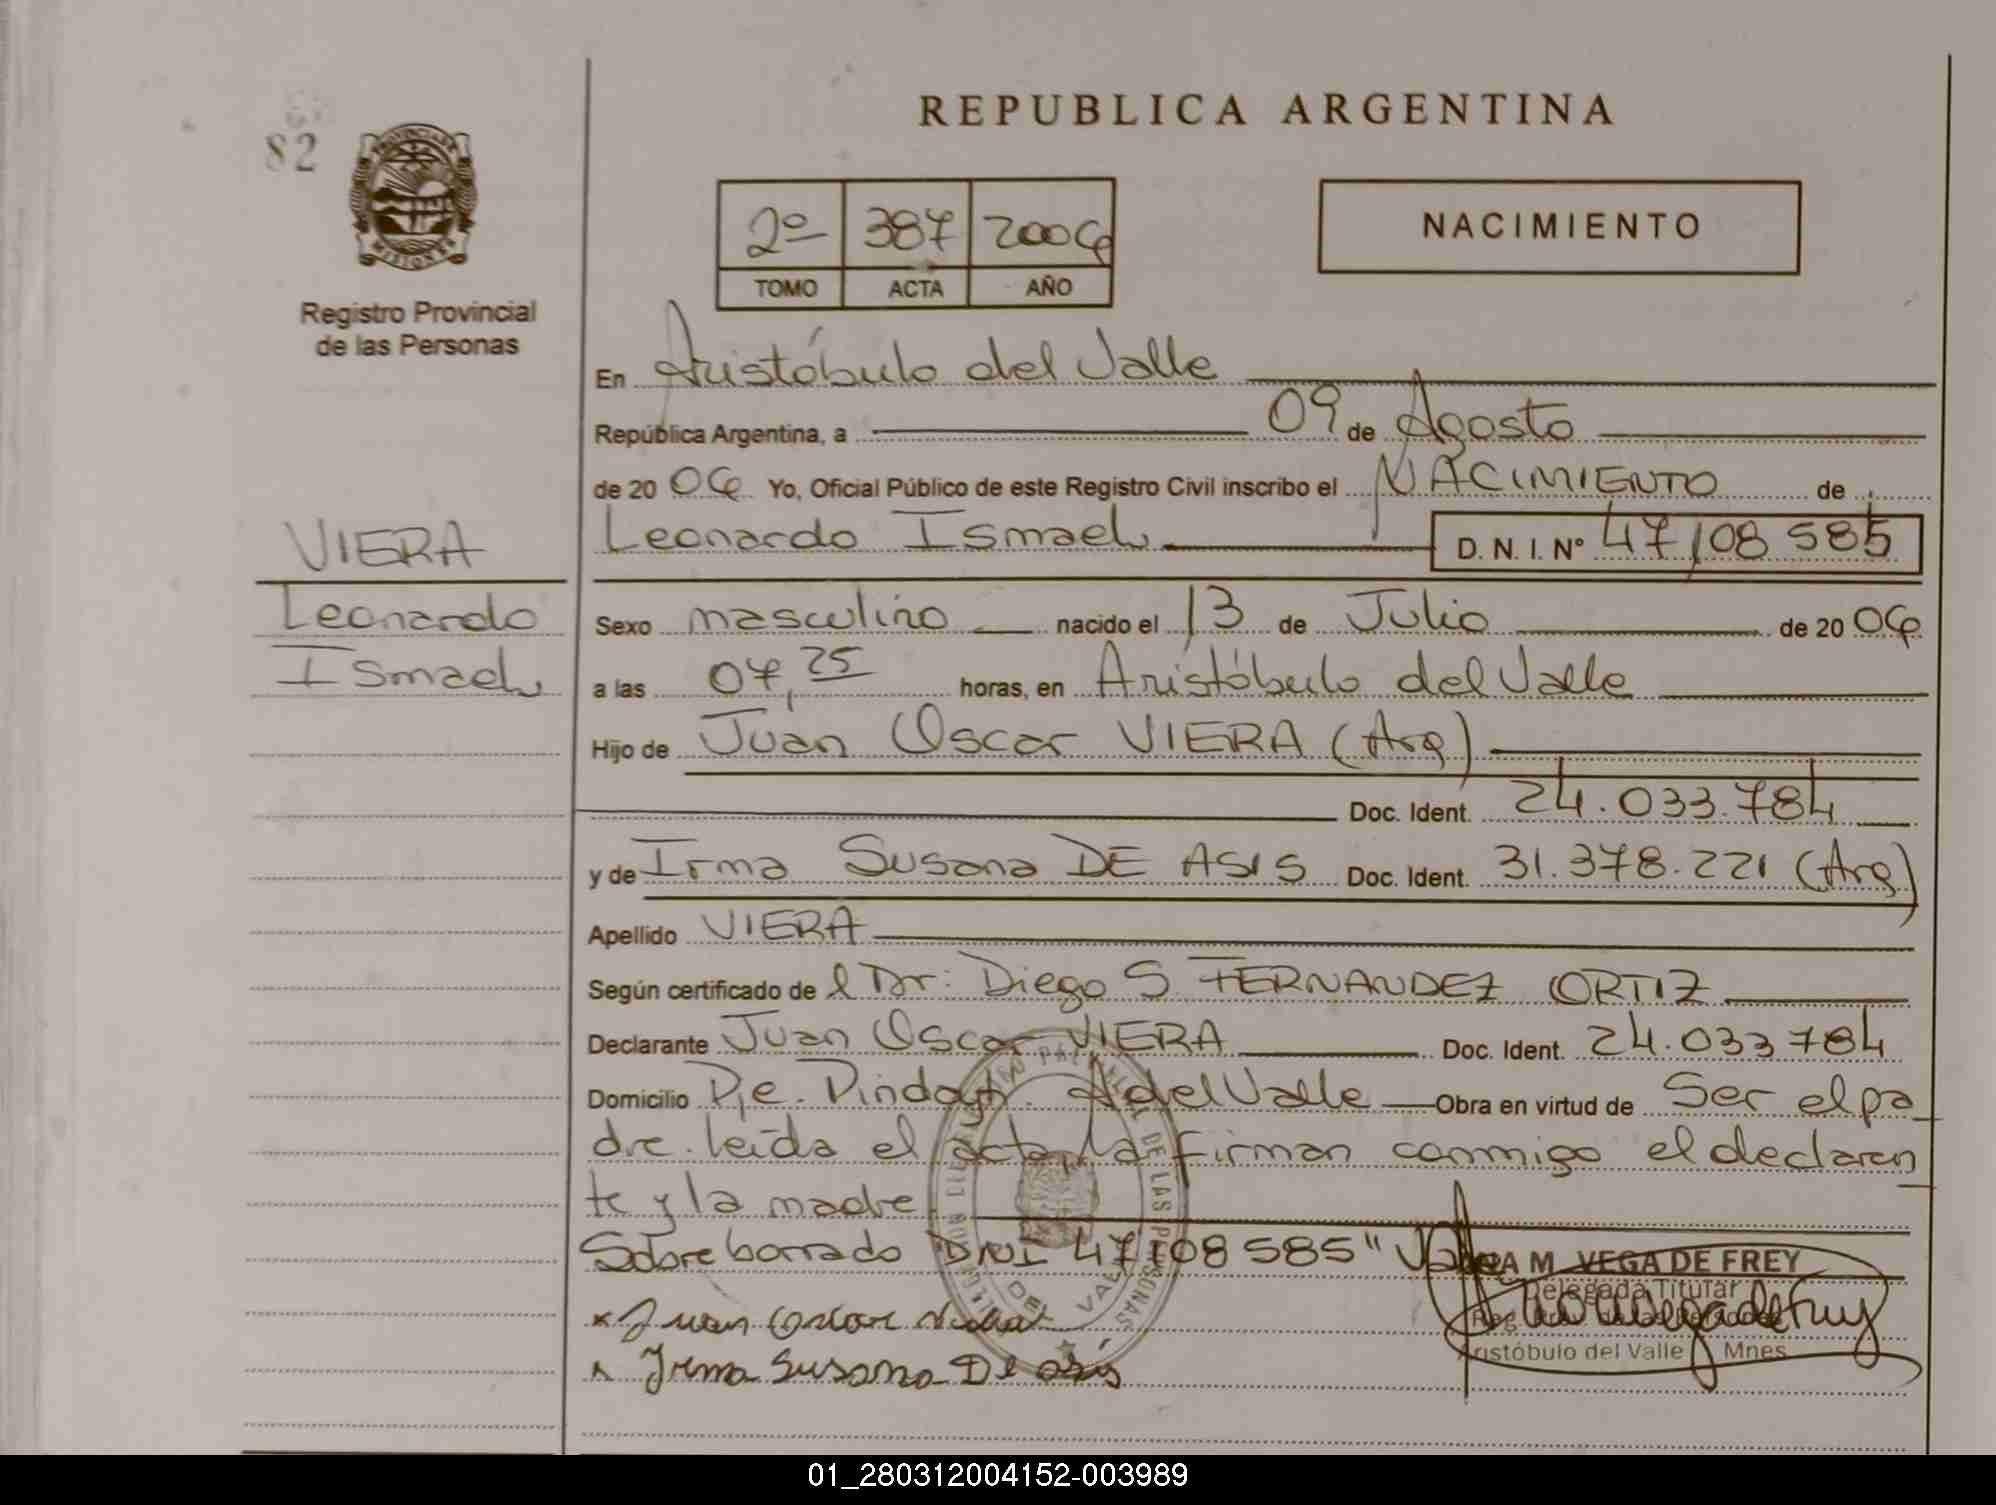 REPUBLICA ARGENTINA
82
PROVINCIA DE
MISIONES
Registro Provincial
de las Personas
2º 387 2006
TOMO ACTA AÑO
NACIMIENTO
En Aristóbulo del Valle
República Argentina, a 09 de Agosto
de 20 06 Yo, Oficial Público de este Registro Civil inscribo el NACIMIENTO de
Leonardo Ismael D. N. I. Nº 47108585
VIERA
Leonardo
Ismael
Sexo masculino nacido el 13 de Julio de 20 06
a las 07,25 horas, en Aristóbulo del Valle
Hijo de Juan Oscar VIERA (Arg)
Doc. Ident. 24.033.784
y de Irma Susana DE ASIS Doc. Ident. 31.378.221 (Arg)
Apellido VIERA
Según certificado de l Dr: Diego S. FERNANDEZ ORTIZ
Declarante Juan Oscar VIERA Doc. Ident. 24.033784
Domicilio A del Valle Obra en virtud de Ser el pa
dre. leída el acta, la firman conmigo el declaran
te y la madre.
Sobre borrado DNI 47108585" Vale
x Juan Oscar Viera
x Irma Susana De asis
M. VEGA DE FREY
Delegada Titular
Aristóbulo del Valle Mnes
DE LAS PERSONAS
01_280312004152-003989